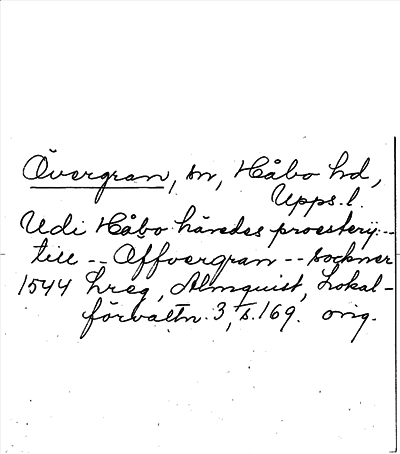 Övergran, sn, Håbo hd,
Upps. l.
Udi Håbo häredes proestery --
till -- Offvergran -- sockner
1544 hreg, Almquist, Lokal-
förvaltn. 3, s. 169. orig.